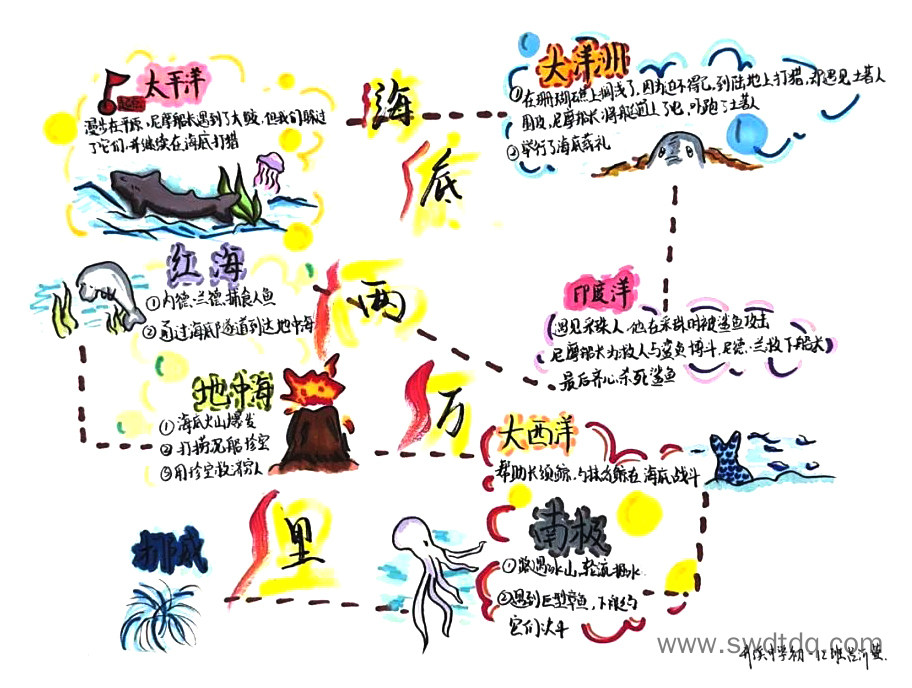 太平洋
漫步在平原，尼摩船长遇到了大鲛，但我们躲过
了它们，并继续在海底打猎
海
底
两
万
里
大洋洲
①在珊瑚礁上搁浅了，因为迫不得已，到陆地上打猎，却遇见土著人
围攻，尼摩船长将船通上了电，吓跑了土著人
②举行了海底葬礼
红海
①内德·兰德捕食人鱼
②通过海底隧道到达地中海
印度洋
遇见采珠人，他在采珠时被鲨鱼攻击
尼摩船长为救人与鲨鱼博斗，尼德·兰
最后齐心杀死鲨鱼
地中海
①海底火山爆发
②打捞沉船珍宝
③用珍宝救济穷人
大西洋
帮助长须鲸，与抹香鲸在海底战斗
南极
①路遇冰山，轮流
②遇到巨型章鱼，下船与
它们决斗
挪威
www.swdtdq.com
中学初一12班